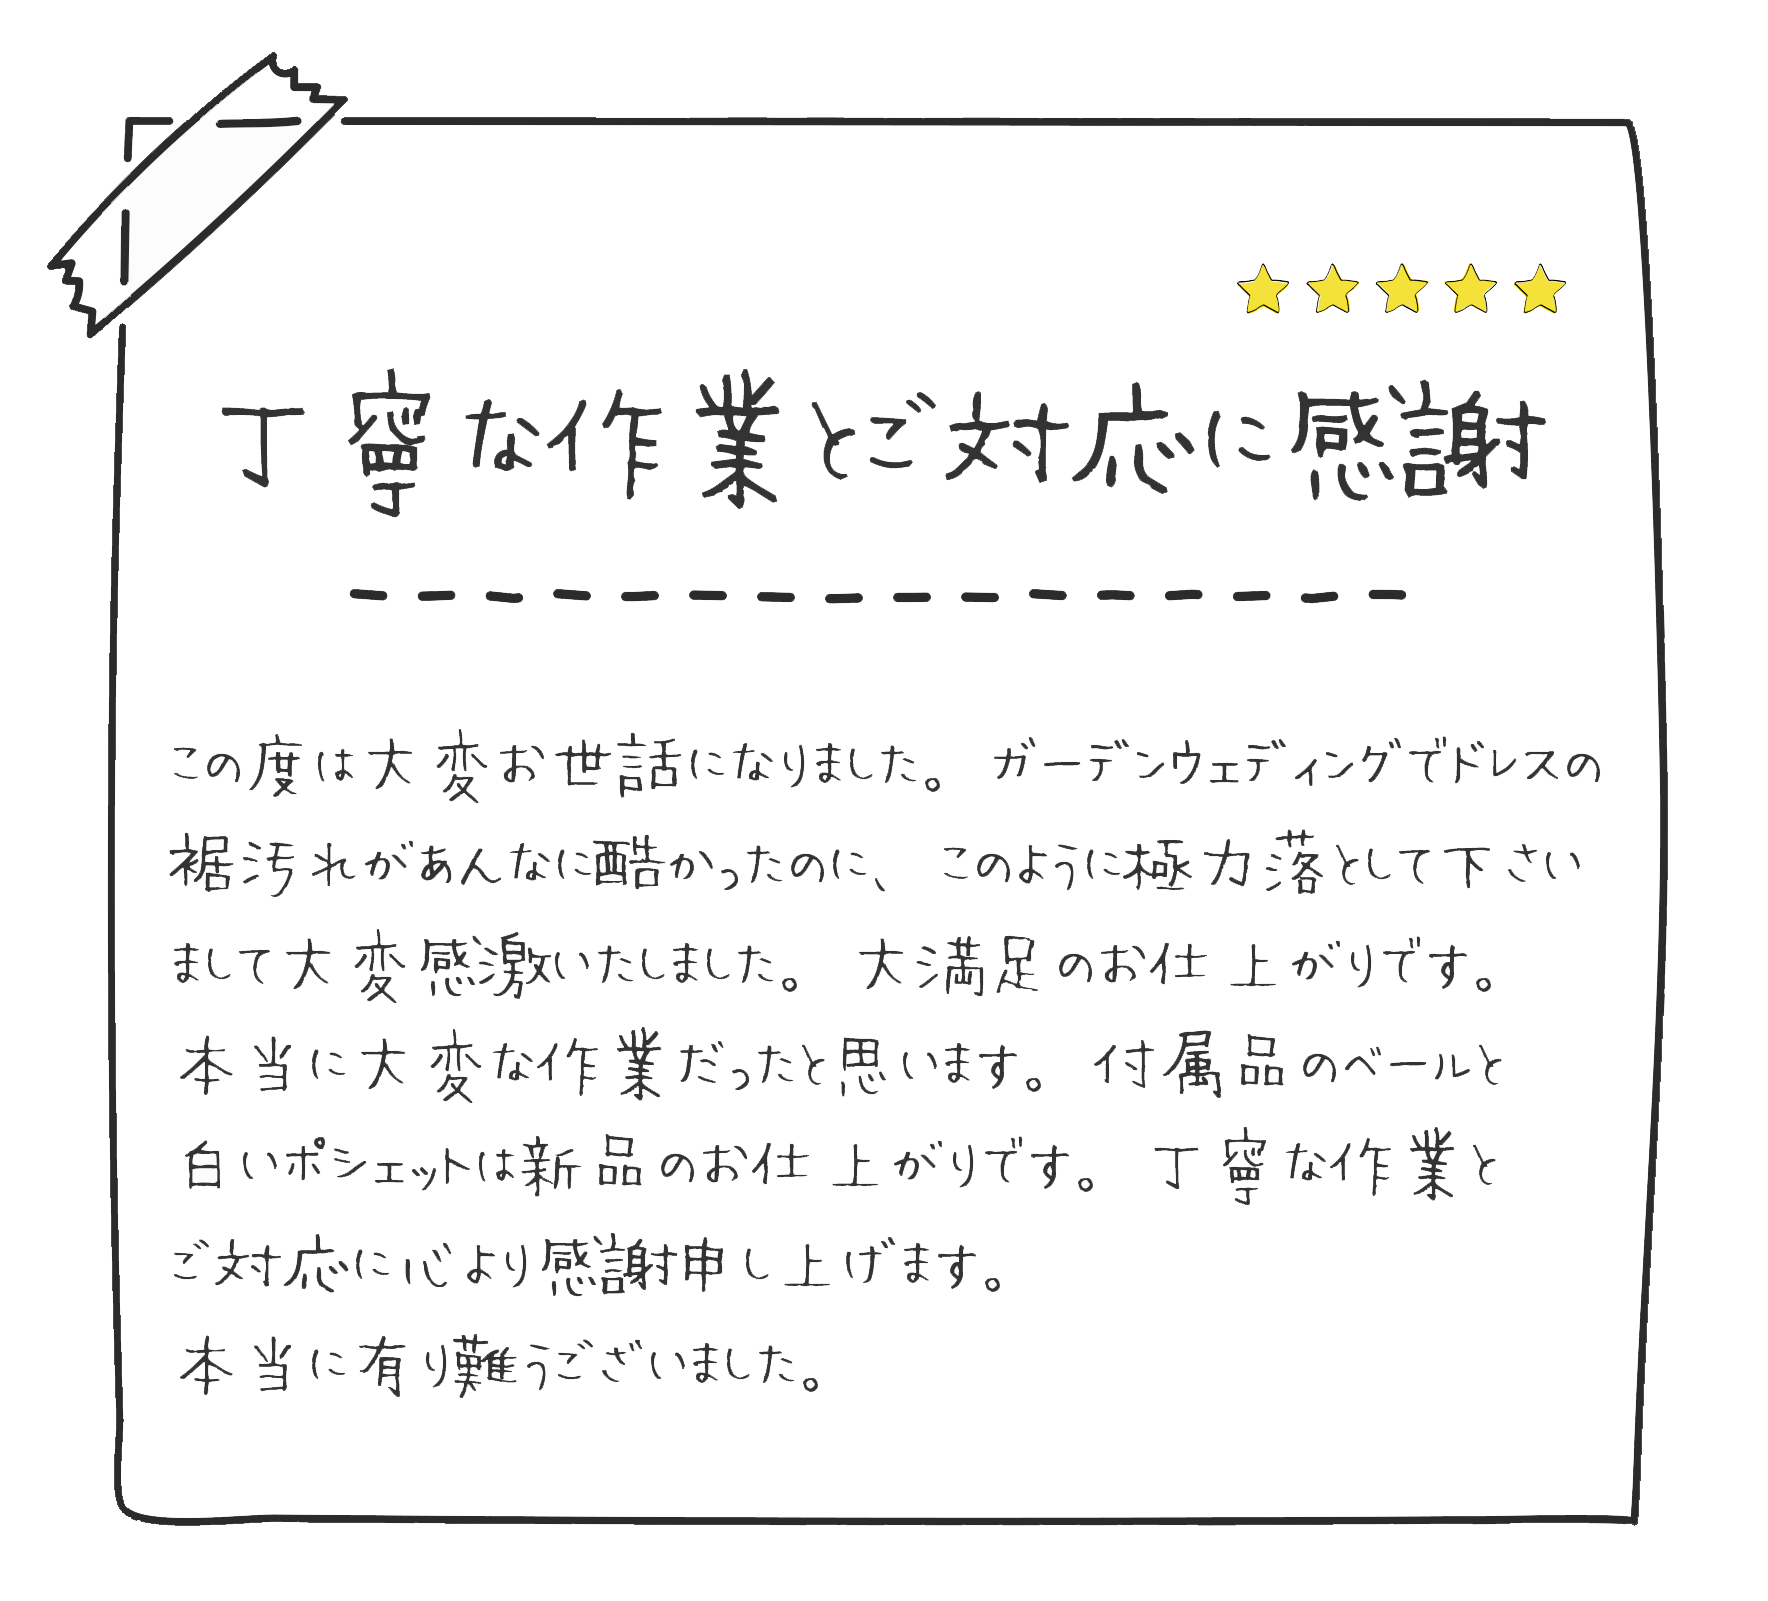 丁寧な作業とご対応に感謝
この度は大変お世話になりました。 ガーデンウェディングでドレスの
裾汚れがあんなに酷かったのに、 このように極力落として下さい
まして大変感激いたしました。 大満足のお仕上がりです。
本当に大変な作業だったと思います。 付属品のベールと
白いポシェットは新品のお仕上がりです。 丁寧な作業と
ご対応に心より感謝申し上げます。
本当に有り難うございました。